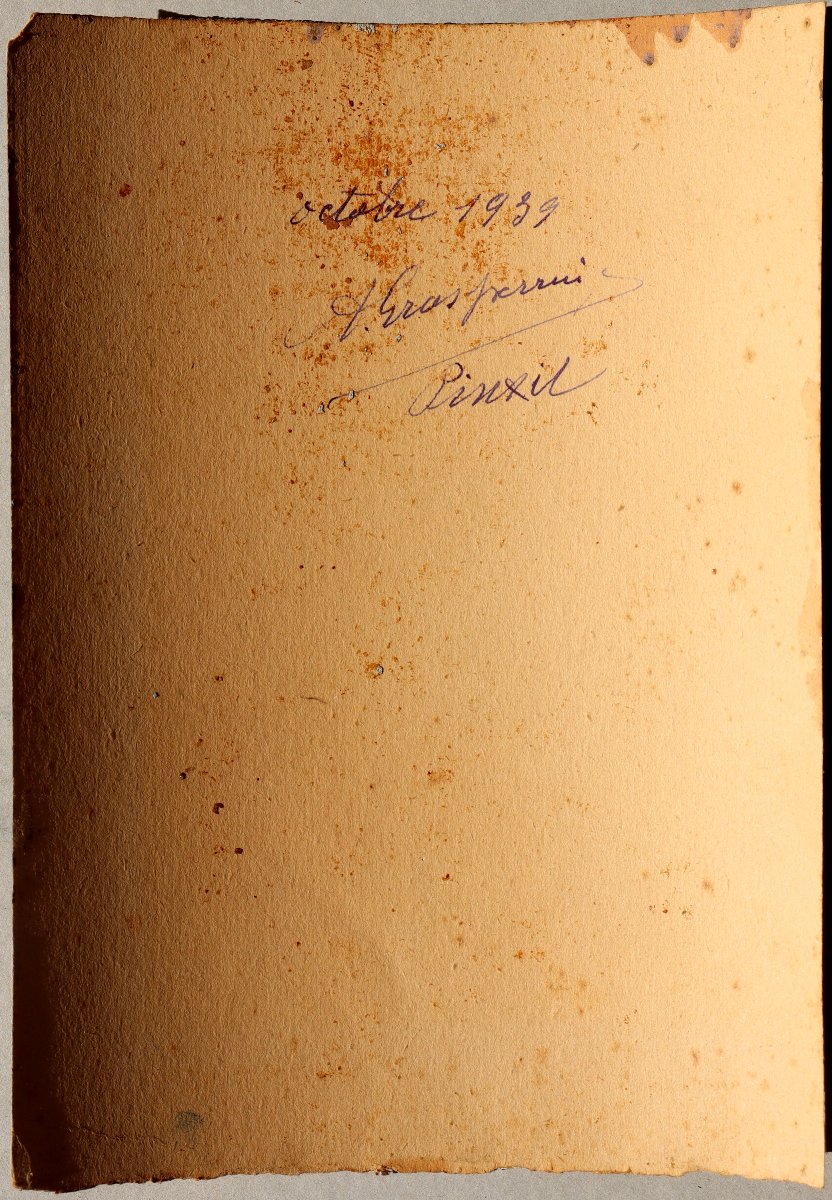 octobre 1939
A. Grasperrini
Pinxit